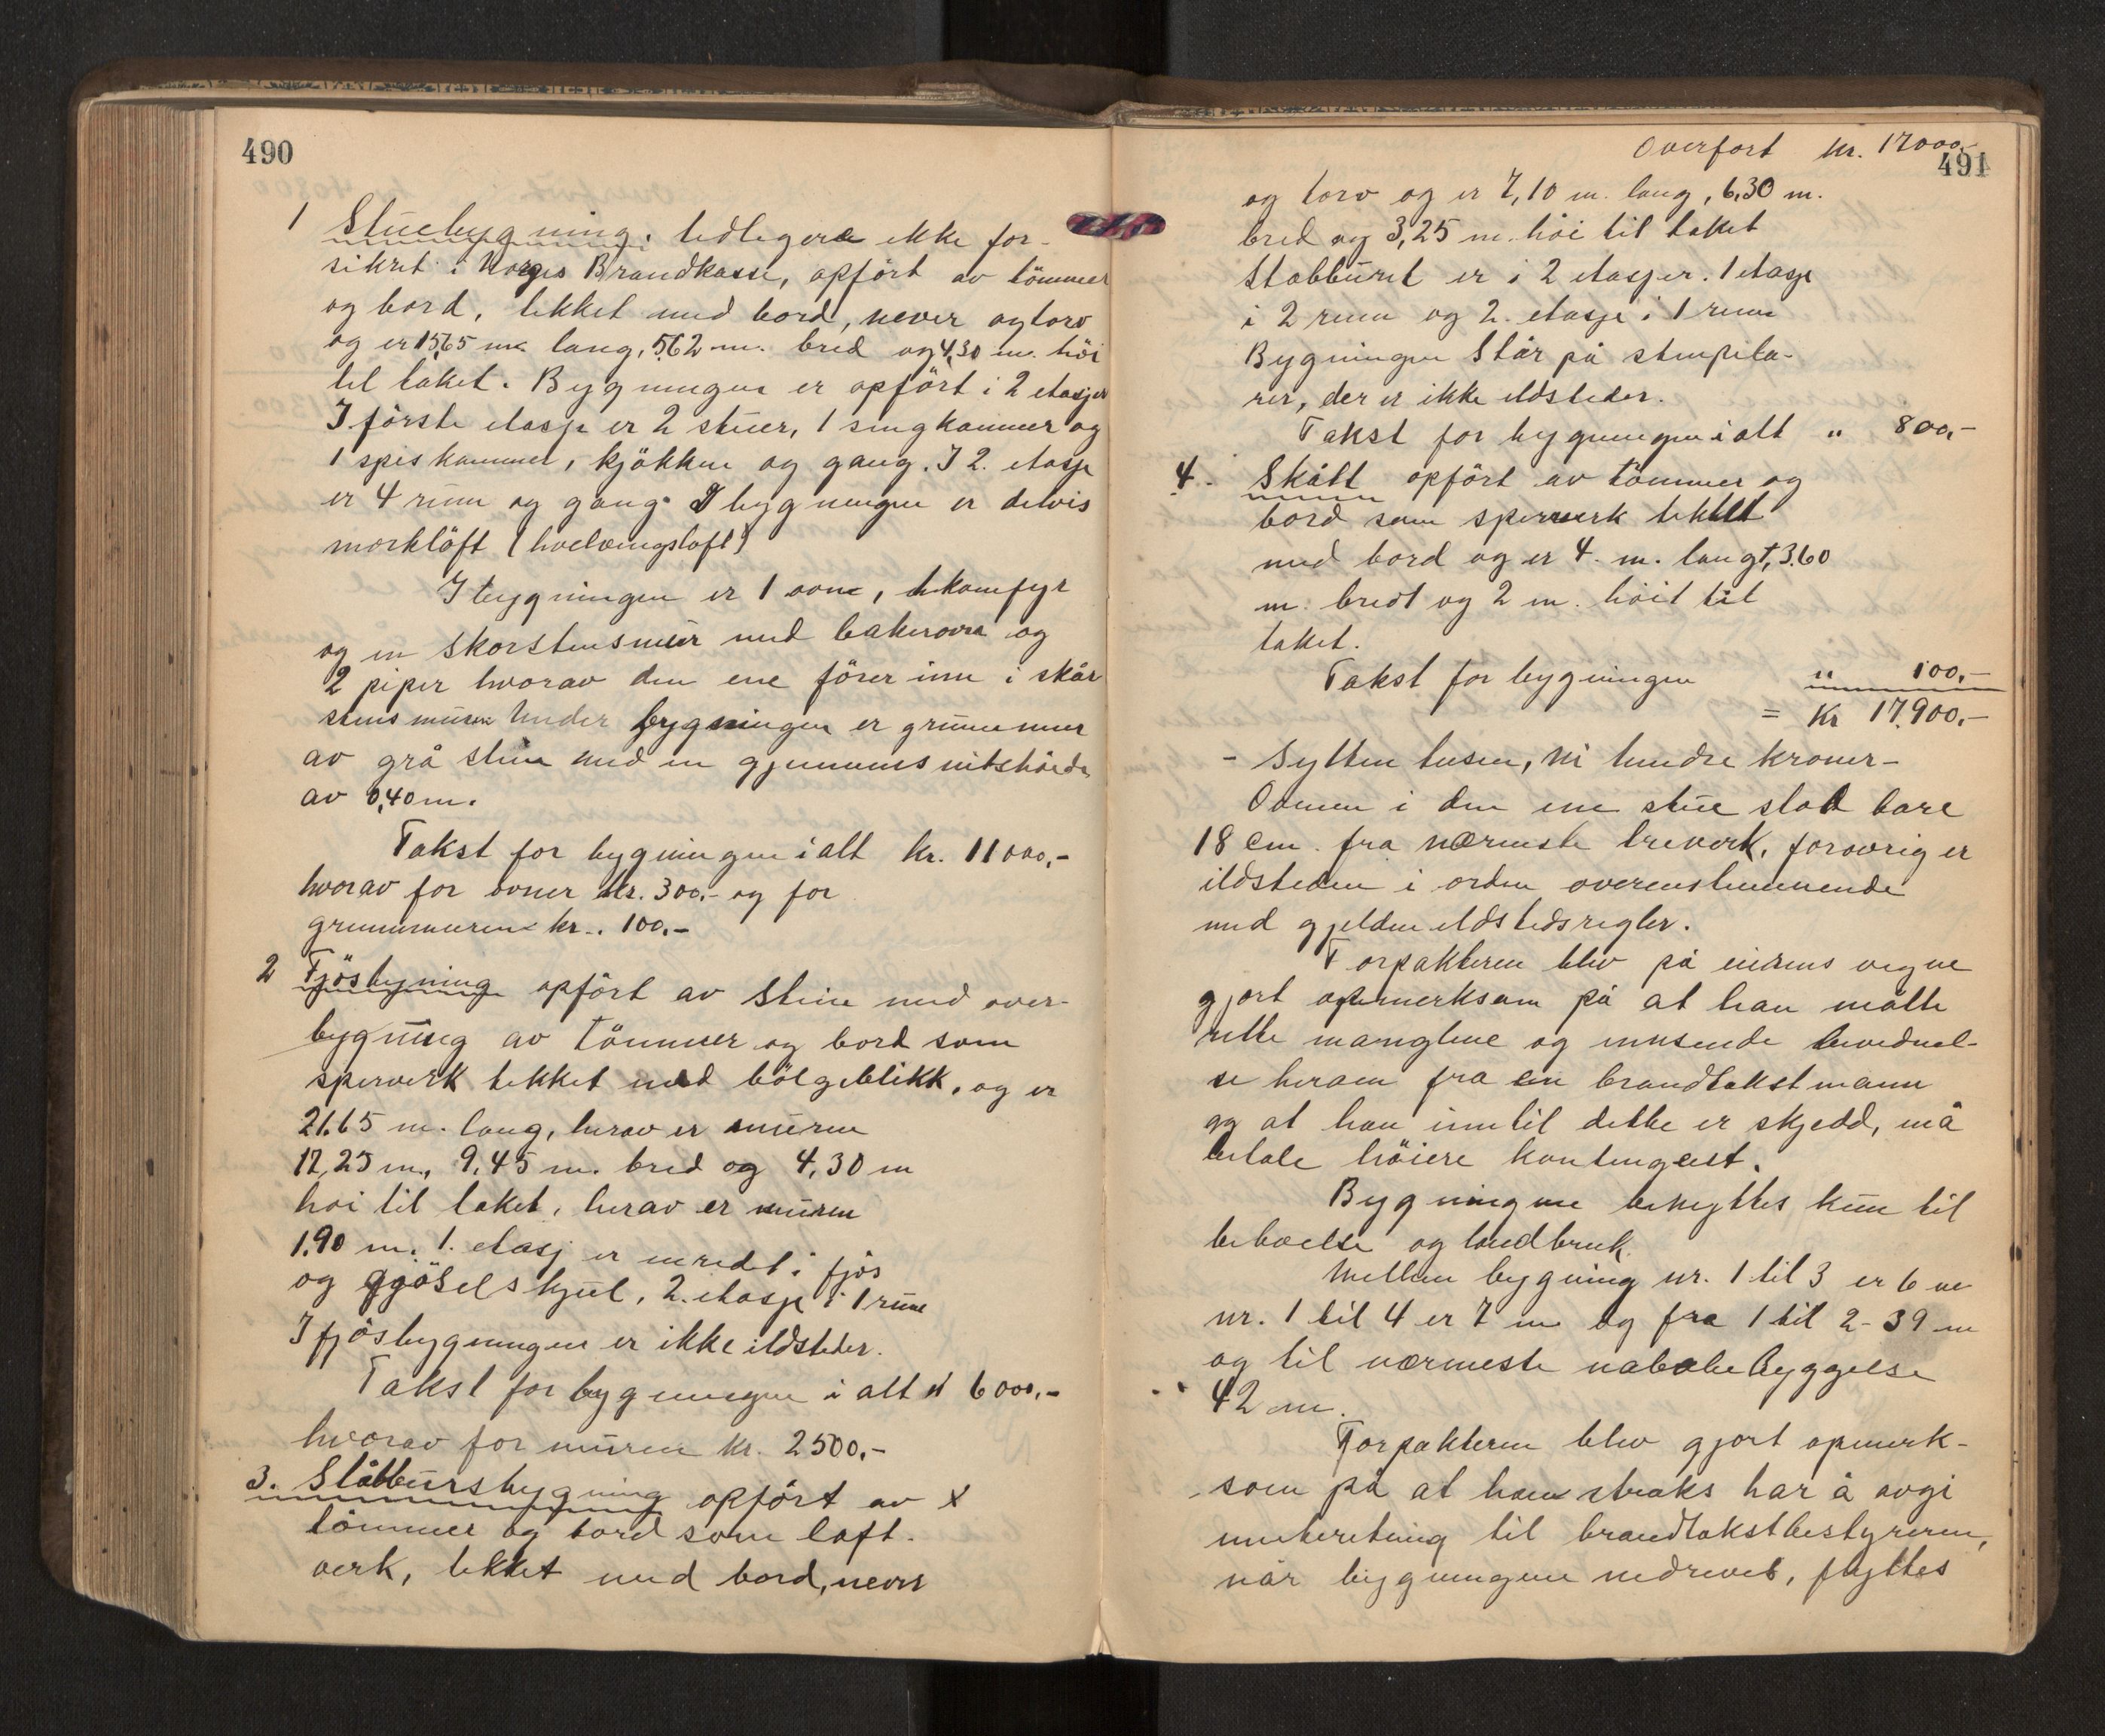 490
1 Stuebygning. tidligere ikke for-
sikret i Norges Brandkasse, opfört av tömmer
og bord, tekket med bord, never og torv
og er 15,65 m. lang, 5,62 m. bred og 4,30 m. höi
til taket. Bygningen er opfört i 2 etasjer
I förste etasje er 2 stuer, 1 sengkammer og
1 spiskammer, kjökken og gang. I 2. etasje
er 4 rum og gang. I bygningen er delvis
mörklöft (hvelvingsloft)
I bygningen er 1 ovn, 1 komfyr
og en skorstensmur med bakerovn og
2 piper hvorav den ene förer inn i skår
stensmuren Under bygningen er grunnmur
av grå sten med en gjennemsnitshöide
av 0,40 m.
Takst for bygningen ialt kr. 11000,-
hvorav for ovner kr. 300,- og for
grunnmuren kr. 100,-
2 Fjösbygning opfört av sten med over-
bygning av tömmer og bord som
sperverk tekket med bölgeblikk, og er
21,65 m. lang, herav er muren
12,25 m., 9,45 m. bred og 4,30 m
höi til taket, herav er muren
1,90 m. 1. etasj er inredet i fjös
og gjödselskjul, 2. etasje i 1 rum
I fjösbygningen er ikke ildsteder.
Takst for bygningen i alt " 6000,-
hvorav for muren kr. 2500,-
3. Stabbursbygning opfört av x
tömmer og bord som laft-
verk, tekket med bord, never
Overfört kr. 17000,-
491
og torv og er 7,10 m. lang, 6,30 m.
bred og 3,25 m. höi til taket
Stabburet er i 2 etasjer. 1 etasje
i 2 rum og 2. etasje i 1 rum
Bygningen står på stenpila-
rer, der er ikke ildsteder.
Takst for bygningen i alt " 800,-
4. Skått opfört av tömmer og
bord som sperverk tekket
med bord og er 4. m. langt, 3.60
m. bredt og 2 m. höit til
taket.
Takst for bygningen " 100,-
= Kr 17.900,-
- Sytten tusen, ni hundre kroner-
Ovnen i den ene stue stod bare
18 cm. fra nærmeste treverk, forövrig er
ildstedene i orden overensstemmende
med gjelden ildstedsregler.
Forpakteren blev på eierens vegne
gjort opmerksam på at han måtte
rette manglene og innsende bevidnel-
se herom fra en brandtakstmann
og at han inntil dette er skjedd, må
betale höiere kontingent.
Bygningene benyttes kun til
beboelse og landbruk.
Mellem bygning nr. 1 til 3 er 6 m
nr. 1 til 4 er 7 m og fra 1 til 2 - 39 m
og til nærmeste nabobebyggelse
42 m.
Forpakteren blev gjort opmerk-
som på at han straks har å avgi
innberetning til brandtakstbestyreren,
når bygningene nedrives, flyttes